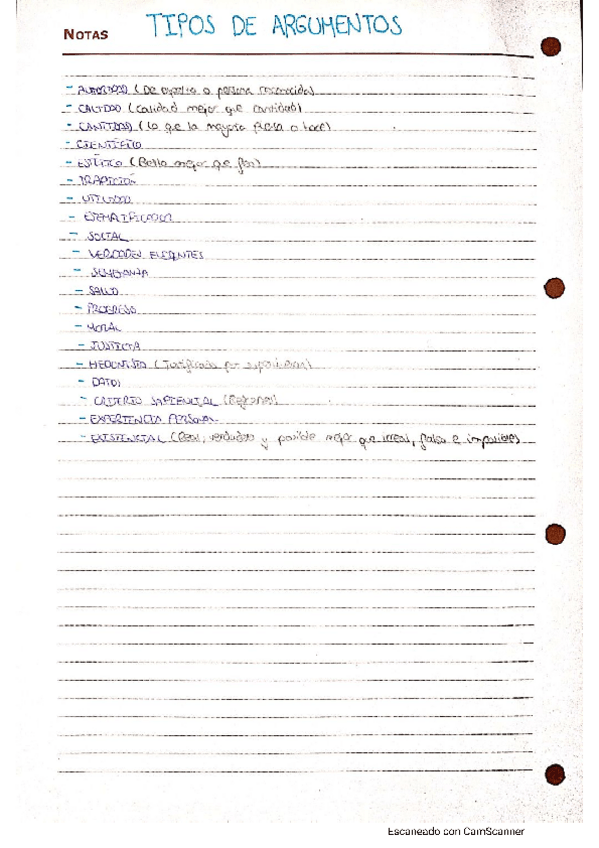 NOTAS
TIPOS DE ARGUMENTOS
- AUTORIDAD (De experto o persona reconocida)
- CALIDAD (calidad mejor que cantidad)
- CANTIDAD (lo que la mayoría piensa o hace)
- CIENTÍFICO
- ESTÉTICO (Bello mejor que feo)
- TRADICIÓN
- UTILIDAD
- EJEMPLIFICADOR
- SOCIAL
- VERDADES EVIDENTES
- SEMEJANZA
- SALUD
- PROGRESO
- MORAL
- JUSTICIA
- HEDONISTA (Justificada por
- DATOS
- CRITERIO SAPIENCIAL (Refranes)
- EXPERIENCIA PERSONAL
- EXISTENCIAL (Real, verdadero y posible mejor que irreal, falso e imposible)
Escaneado con CamScanner